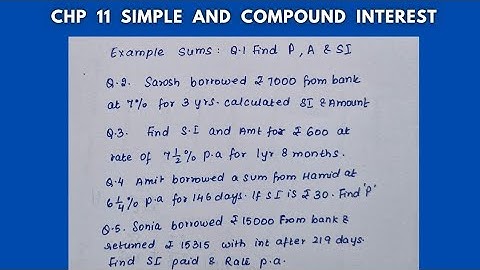 CHP 11 SIMPLE AND COMPOUND INTEREST
Example Sums: Q.1 Find P, A & SI
Q.2. Sarosh borrowed ₹ 7000 from bank
at 7% for 3 yrs. calculated SI & Amount
Q.3. Find S.I and Amt for ₹ 600 at
rate of 7 1/2 % p.a for 1yr 8 months.
Q.4 Amir borrowed a sum from Hamid at
6 1/4 % p.a for 146 days. If SI is ₹ 30. Find 'P'
Q.5. Sonia borrowed ₹ 15000 From bank &
returned ₹ 15315 with int after 219 days.
Find SI paid & Rate p.a.